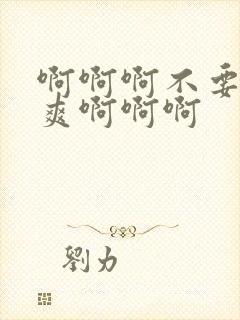 啊啊啊不要
爽啊啊啊
劉力